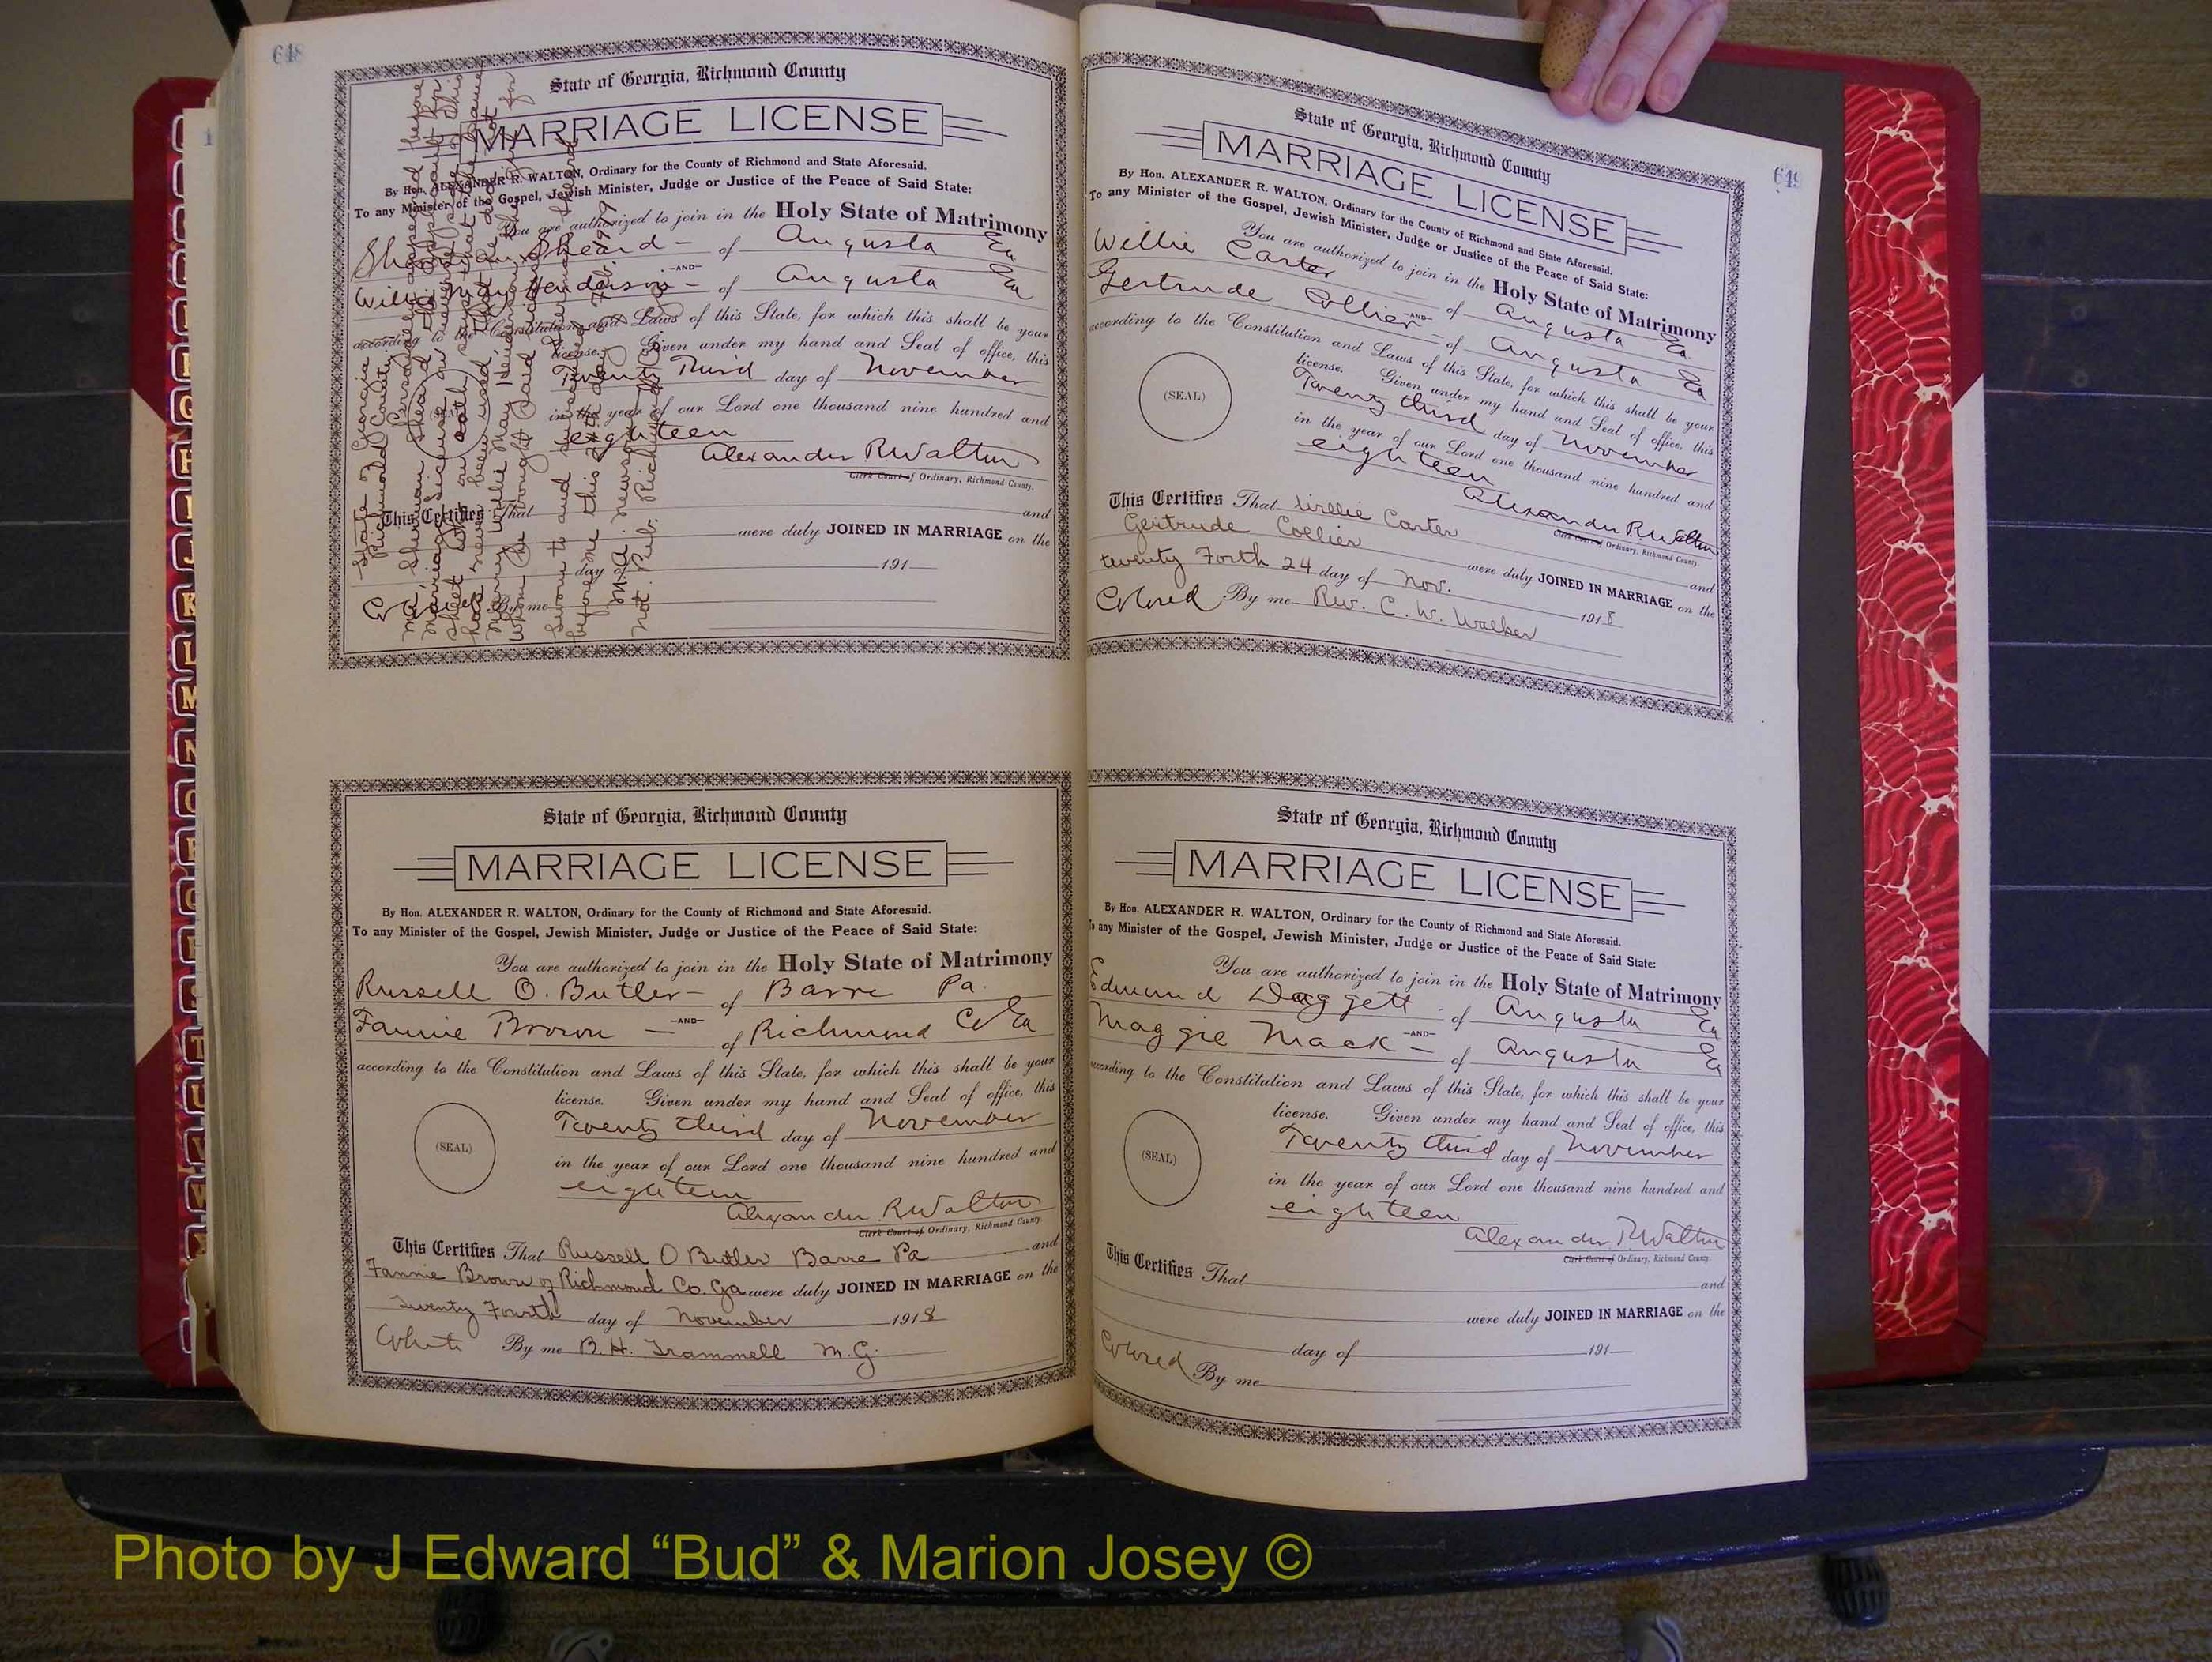 648
State of Georgia, Richmond County
MARRIAGE LICENSE
By Hon. ALEXANDER R. WALTON, Ordinary for the County of Richmond and State Aforesaid.
To any Minister of the Gospel, Jewish Minister, Judge or Justice of the Peace of Said State:
You are authorized to join in the Holy State of Matrimony
Sherman Sheard - of Augusta Ga
-AND-
Willie May Henderson - of Augusta Ga
according to the Constitution and Laws of this State, for which this shall be your
license. Given under my hand and Seal of office, this
Twenty Third day of November
(SEAL)
in the year of our Lord one thousand nine hundred and
eighteen
Alexander R Walton
Clerk Court of Ordinary, Richmond County.
This Certifies That and
were duly JOINED IN MARRIAGE on the
day of 191
By me
State of Georgia
Richmond County
Personally appeared before
me Sherman Sheard the applicant for
Marriage License on
oath
Willie May Henderson
Sworn to and
before me this
Not. Pub. Richmond
State of Georgia, Richmond County
MARRIAGE LICENSE
By Hon. ALEXANDER R. WALTON, Ordinary for the County of Richmond and State Aforesaid.
To any Minister of the Gospel, Jewish Minister, Judge or Justice of the Peace of Said State:
You are authorized to join in the Holy State of Matrimony
Russell O. Butler - of Barre Pa.
-AND-
Fannie Brown - of Richmond Co Ga
according to the Constitution and Laws of this State, for which this shall be your
license. Given under my hand and Seal of office, this
Twenty third day of November
(SEAL)
in the year of our Lord one thousand nine hundred and
eighteen
Alexander R Walton
Clerk Court of Ordinary, Richmond County.
This Certifies That Russell O Butler Barre Pa and
Fannie Brown of Richmond Co. Ga were duly JOINED IN MARRIAGE on the
Twenty Fourth day of November 1918
White By me B. H. Trammell M.G.
649
State of Georgia, Richmond County
MARRIAGE LICENSE
By Hon. ALEXANDER R. WALTON, Ordinary for the County of Richmond and State Aforesaid.
To any Minister of the Gospel, Jewish Minister, Judge or Justice of the Peace of Said State:
You are authorized to join in the Holy State of Matrimony
Willie Carter of Augusta Ga.
-AND-
Gertrude Collier of Augusta Ga
according to the Constitution and Laws of this State, for which this shall be your
license. Given under my hand and Seal of office, this
Twenty third day of November
(SEAL)
in the year of our Lord one thousand nine hundred and
eighteen
Alexander R. Walton
Clerk Court of Ordinary, Richmond County.
This Certifies That Willie Carter and
Gertrude Collier were duly JOINED IN MARRIAGE on the
twenty Forth 24 day of Nov. 1918
Colored By me Rev. C. W. Walker
State of Georgia, Richmond County
MARRIAGE LICENSE
By Hon. ALEXANDER R. WALTON, Ordinary for the County of Richmond and State Aforesaid.
To any Minister of the Gospel, Jewish Minister, Judge or Justice of the Peace of Said State:
You are authorized to join in the Holy State of Matrimony
Edmund Daggett - of Augusta Ga
-AND-
Maggie Mack - of Augusta Ga
according to the Constitution and Laws of this State, for which this shall be your
license. Given under my hand and Seal of office, this
Twenty third day of November
(SEAL)
in the year of our Lord one thousand nine hundred and
eighteen
Alexander R Walton
Clerk Court of Ordinary, Richmond County.
This Certifies That and
were duly JOINED IN MARRIAGE on the
day of 191
Colored By me
Photo by J Edward “Bud” & Marion Josey ©